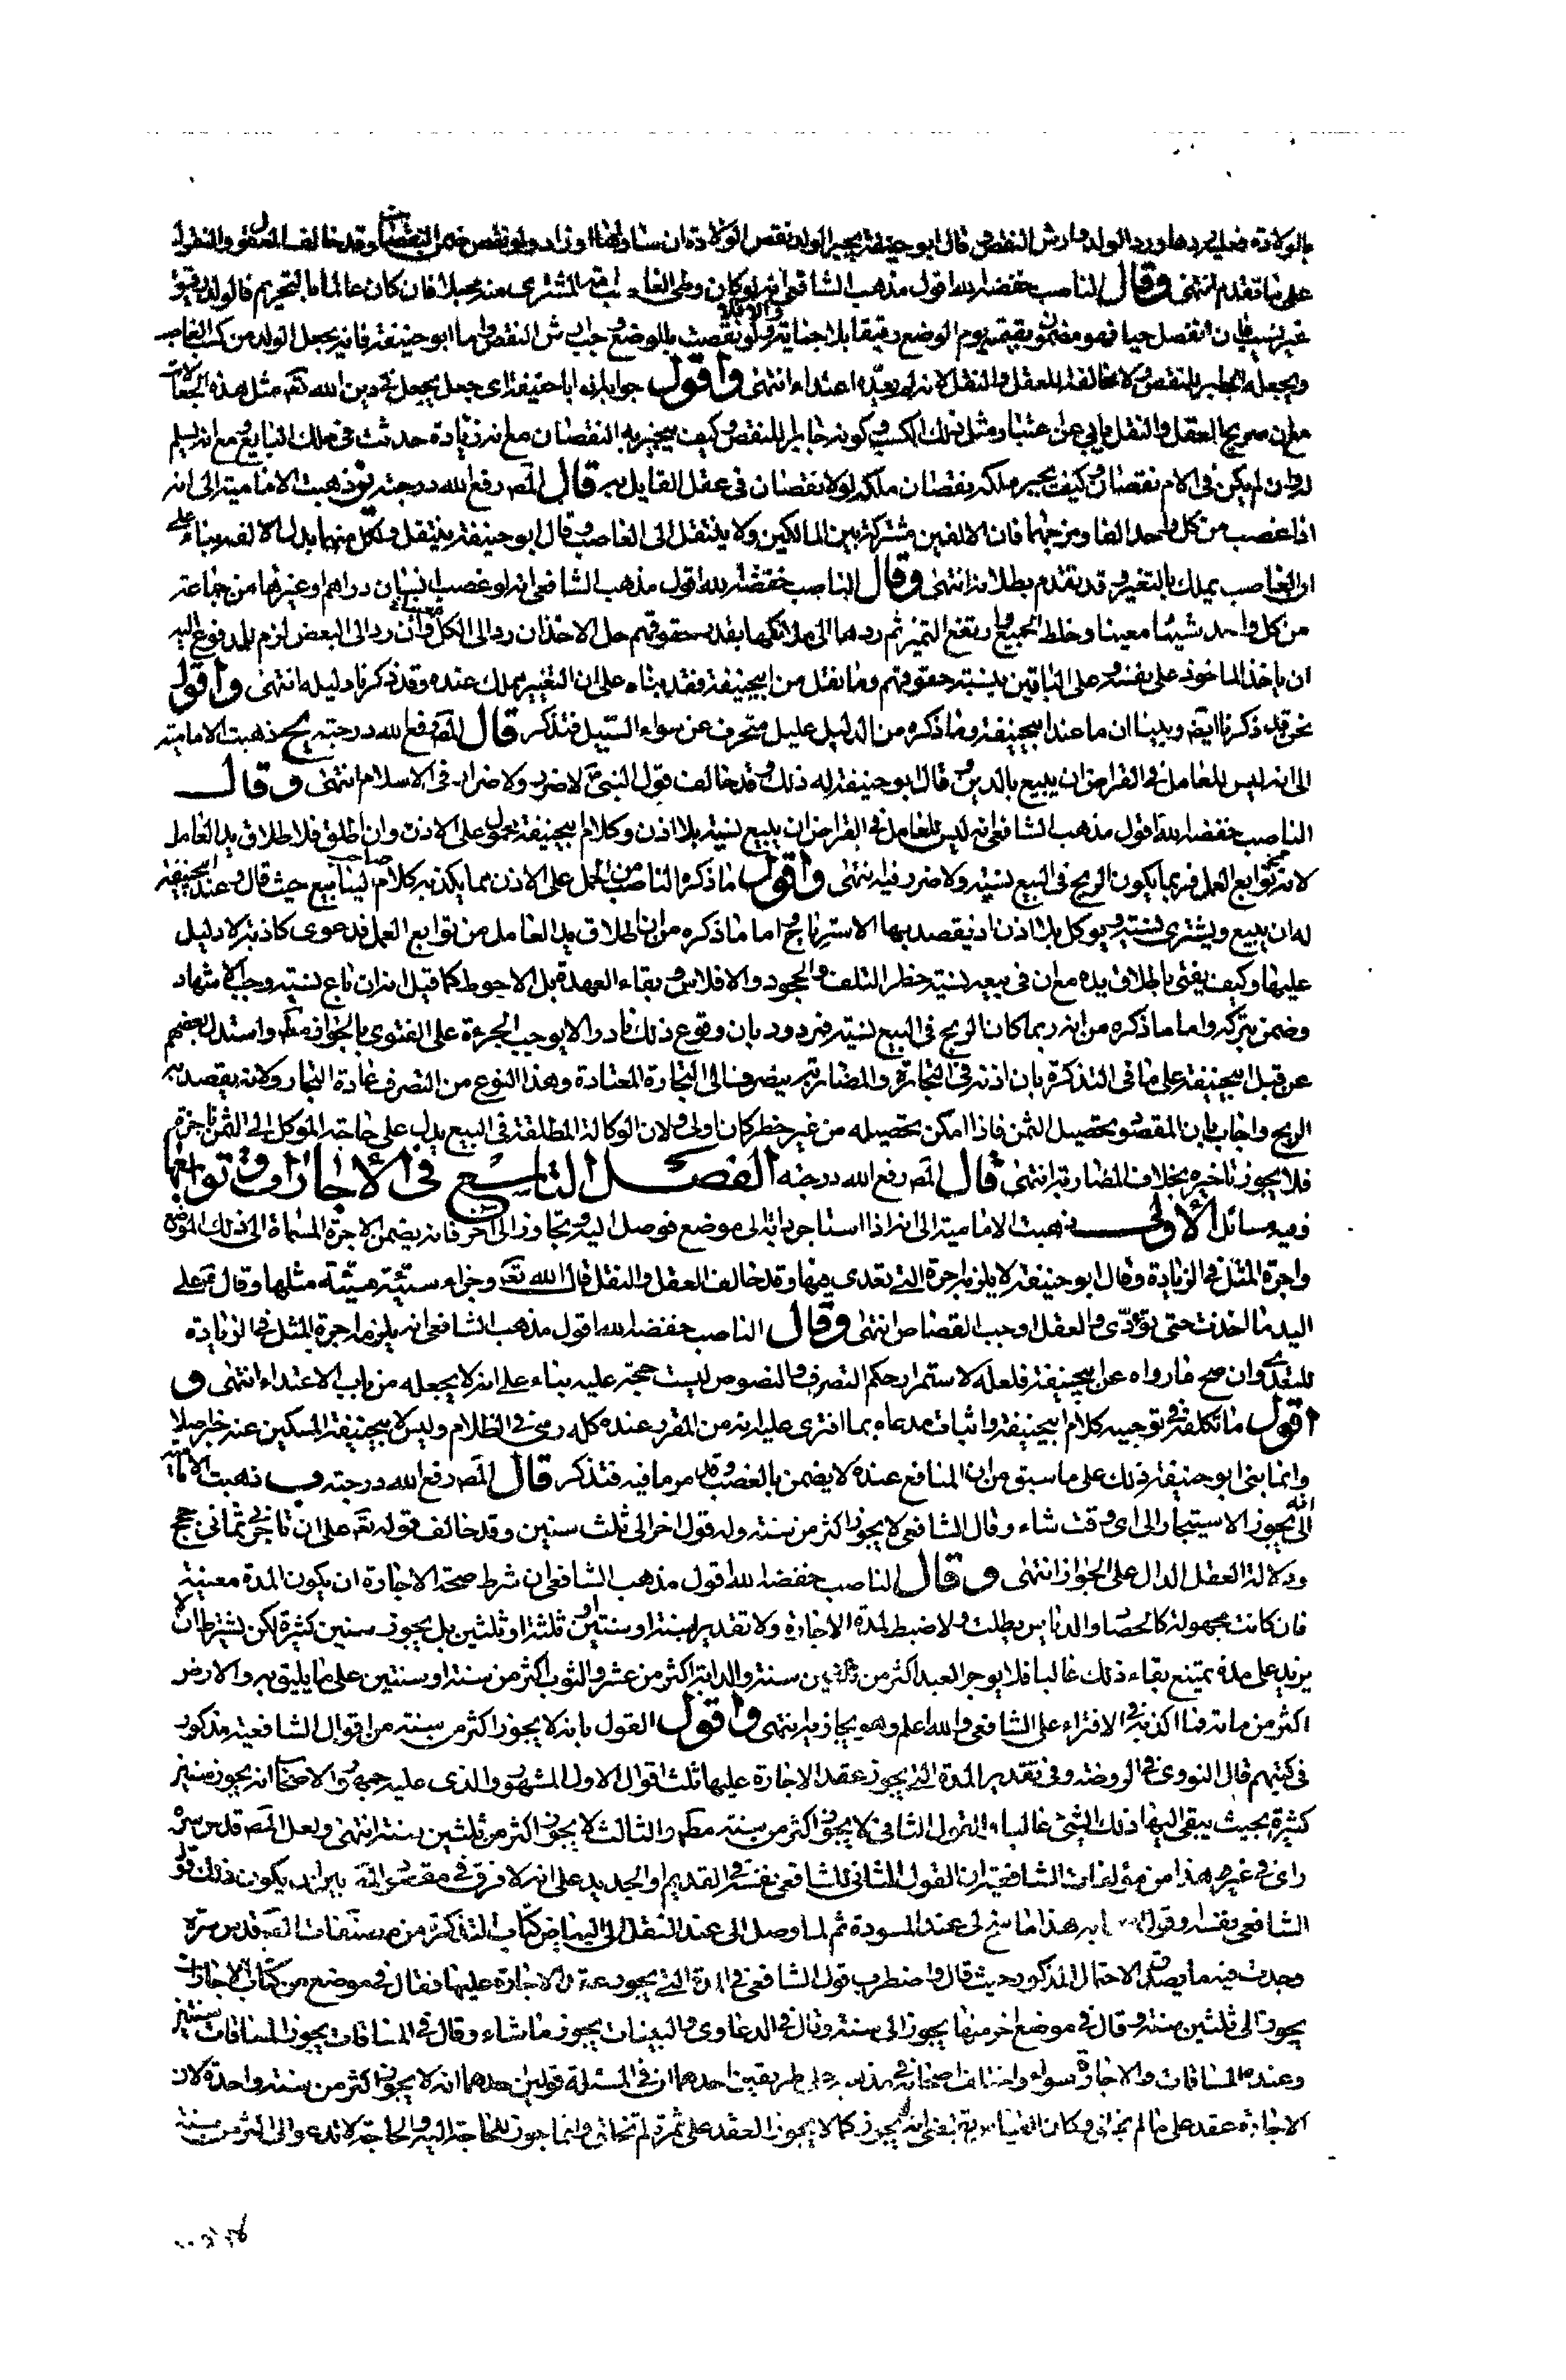 بالولادة فعليه ردها ورد الولد وارش النقص وقال ابو حنيفة يجبر الولد نقص الولادة ان ساواها او زاد ولو نقص ضمن النقصان وقد خالف العقل والنقل
على ما تقدم انتهى وقال الناصب خفضه الله اقول مذهب الشافعي انه لو كان وطي الغاصب او المشتري منه يحبل فان كان عالما بالتحريم فالولد رقيق
غير نسيب فان انفصل حيا فهو مضمون بقيمته يوم الوضع رقيقا بلا جناية ولو نقصت بالوضع وجب ارش النقص واما ابو حنيفة فانه يجعل الولد من كسب الغاصب
ويجعله الجابر للنقص ولا مخالفة للعقل والنقل لانه لم يعده اعتداء انتهى واقول جوابه ان ابا حنيفة اي جعل يجعل في دين الله تع مثل هذه الجعالات
مع ان صريح العقل والنقل يابى عن اعتبار مثل ذلك الكسب وكونه جابرا للنقص وكيف يجبر به النقصان مع انه زيادة حدثت في ملك البايع مع انه يسلم
له وان لم يكن في الام نقصان وكيف يجبر ملكه بنقصان ملكه لولا نقصان في عقل القايل به قال المص رفع الله درجته يو ذهبت الامامية الى انه
اذا غصب من كل واحد الفا ومزجهما فان الالفين مشتركة بين المالكين ولا ينتقل الى الغاصب وقال ابو حنيفة ينتقل ولكل منهما بدل الالف وبناء على
ان الغاصب يملك بالتغير وقد تقدم بطلانه انتهى وقال الناصب خفضه الله اقول مذهب الشافعي انه لو غصب انسان دراهم او غيرها من جماعة
من كل واحد شيئا معينا وخلط الجميع وارتفع التميز ثم ردها الى ملاكها بقدر حقوقهم حل الاخذ ان رد الى الكل وان رد الى البعض لزم المدفوع اليه
ان ياخذ الماخوذ على نفسه وعلى الباقين بنسبة حقوقهم وما نقل من ابي حنيفة فقد بناه على ان التغيير يملك عنده وقد ذكرنا دليله انتهى واقول
نحن قد ذكرنا ايضا وبينا ان ما عند ابي حنيفة وما ذكره من الدليل عليل منحرف عن سواء السبيل فتذكر قال المص رفع الله درجته يح ذهبت الامامية
الى انه ليس للعامل في القراض ان يبيع بالدين وقال ابو حنيفة له ذلك وقد خالف قول النبي ص لا ضرر ولا ضرار في الاسلام انتهى وقال
الناصب خفضه الله اقول مذهب الشافعي انه ليس للعامل في القراض ان يبيع نسية بلا اذن وكلام ابي حنيفة محمول على الاذن وان اطلق فلاطلاق يد العامل
لانه من توابع العمل فربما يكون الربح في البيع نسية ولا ضرر فيه انتهى واقول ما ذكره الناصب من الحمل على الاذن مما يكذبه كلام صاحب الينابيع حيث قال وعند ابي حنيفة
له ان يبيع ويشتري نسية ويوكل بلا اذن اذ يقصد بها الاسترباح واما ما ذكره من ان اطلاق يد العامل من توابع العمل فدعوى كاذبة لا دليل
عليها وكيف يفتى باطلاق يده مع ان في بيعه نسية خطر التلف والجحود والافلاس وبقاء العهدة قبل الاحوط كما قيل انه ان باع نسية وجب الاشهاد
وضمن بتركه واما ما ذكره من انه ربما كان الربح في البيع نسية فمردود بان وقوع ذلك نادرا لا يوجب الجرءة على الفتوى بالجواز مطلقا واستدل بعضهم
عن قبل ابي حنيفة على ما في التذكرة بان اذنه في التجارة والمضاربة ينصرف الى التجارة المعتادة وهذا النوع من التصرف عادة التجار ولانه يقصد به
الربح واجاب بان المقصود تحصيل الثمن فاذا امكن تحصيله من غير خطر كان اولى ولان الوكالة المطلقة في البيع يدل على حاجة الموكل الى الثمن ناجزة
فلا يجوز تاخيره بخلاف المضاربة انتهى قال المص رفع الله درجته الفصل التاسع في الاجارات وتوابعها
وفيه مسائل الاولى ذهبت الامامية الى انه اذا استاجر دابة الى موضع فوصل اليه وتجاوز الى آخر فانه يضمن الاجرة المسماة الى ذلك الموضع
واجرة المثل في الزيادة وقال ابو حنيفة لا يلزمه اجرة التي تعدى فيها وقد خالف العقل والنقل قال الله تع وجزاء سيئة سيئة مثلها وقال ع على
اليد ما اخذت حتى تؤدي والعقل اوجب القصاص انتهى وقال الناصب خفضه الله اقول مذهب الشافعي انه يلزمه اجرة المثل في الزيادة
للتعدي وان صح ما رواه عن ابي حنيفة فلعله لاستمرار حكم التصرف والنصوص ليست حجة عليه بناء على انه لا يجعله من باب الاعتداء انتهى و
اقول ما تكلفه في توجيه كلام ابي حنيفة واثبات مدعاه بما افترى عليه انه من المقرر عنده كله رمي في الظلام وليس لابي حنيفة المسكين عنه خبر اصلا
وانما بنى ابو حنيفة ذلك على ما سبق من ان المنافع عنده لا يضمن بالغصب وقد مر ما فيه فتذكر قال المص رفع الله درجته ب ذهبت الامامية
الى انه يجوز الاستيجار الى اي وقت شاء وقال الشافعي لا يجوز اكثر من سنة وله قول اخر الى ثلث سنين وقد خالف قوله تع على ان تاجرني ثماني حجج
ودلالة العقل الدال على الجواز انتهى وقال الناصب خفضه الله اقول مذهب الشافعي ان شرط صحة الاجارة ان يكون المدة معينة
فان كانت مجهولة كالحصاد والدياس بطلت ولا ضبط لمدة الاجارة ولا تقدير بسنة او سنتين او ثلثة او ثلثين بل يجوز سنين كثيرة لكن يشترط ان لا
يزيد على مدة يمتنع بقاء ذلك غالبا فلا يوجر العبد اكثر من ثلثين سنة والدابة اكثر من عشر والثوب اكثر من سنة او سنتين على ما يليق به والارض
اكثر من مائة فما اكذبه في الافتراء على الشافعي والله اعلم وهو يجازيه انتهى واقول القول بانه لا يجوز اكثر من سنة من اقوال الشافعية مذكور
في كتبهم قال النووي في الروضة وفي تقدير المدة التي يجوز عقد الاجارة عليها ثلث اقوال الاول المشهور والذي عليه جمهور الاصحاب انه يجوز سنين
كثيرة بحيث يبقى اليها ذلك الشئ غالبا والقول الثاني لا يجوز اكثر من سنة مطلقا والثالث لا يجوز اكثر من ثلثين سنة انتهى ولعل المص قدس سره
راى في غير هذا من مؤلفات الشافعية ان القول الثاني للشافعي نفسه في القديم او الجديد على انه لا فرق في مقصود المص بين ان يكون ذلك قول
الشافعي نفسه وقول اصحابه هذا ما سنح لي عند المسودة ثم لما وصل الى عند النقل الى البياض كتاب التذكرة من مصنفات المص قدس سره
وجدت فيه ما يصدق الاحتمال المذكور حيث قال واضطرب قول الشافعي في المدة التي يجوز عقد الاجارة عليها فقال في موضع من كتاب الاجارات
يجوز الى ثلثين سنة وقال في موضع اخر منها يجوز الى سنة وقال في الدعاوى والبينات يجوز ما شاء وقال في المساقات يجوز المساقات سنين
وعنده المساقات والاجارة سواء واختلف اصحابه في هذه على طريقين احدهما ان في المسئلة قولين احدهما انه لا يجوز اكثر من سنة واحدة لان
الاجارة عقد على ما لم يخلق وكان القياس يقتضي انه لا يجوز كما لا يجوز العقد على ثمرة لم تخلق وانما جوز للحاجة اليه والحاجة لا تدعو الى اكثر من سنة